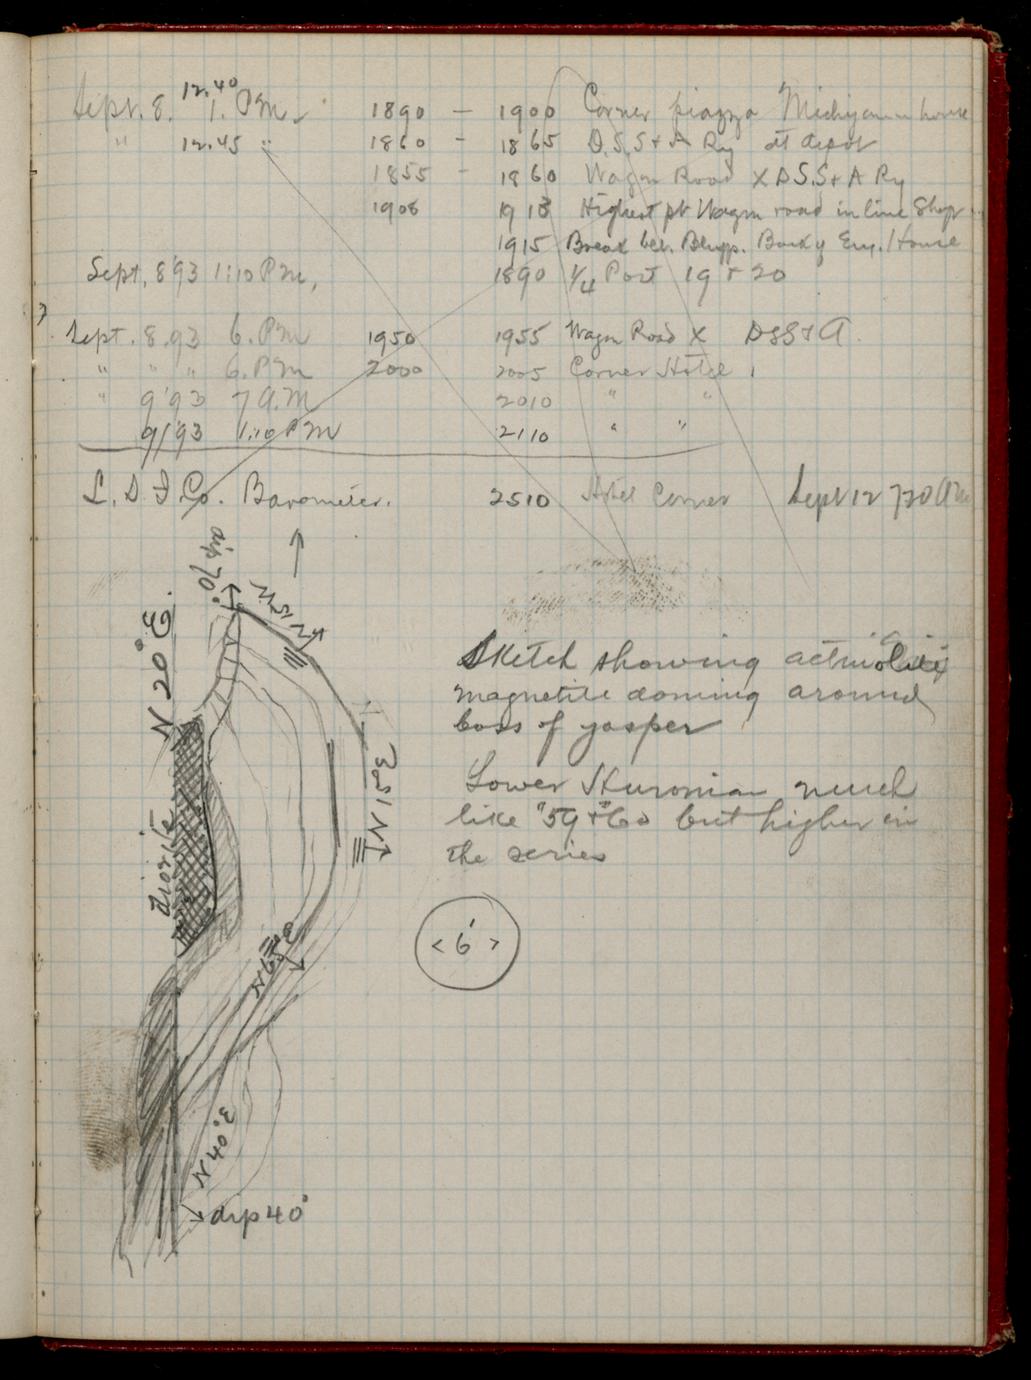 Sept. 8. 12.40 1. P.M. 1890 - 1900 Corner piazza Michigamme house
" 12.45 " 1860 - 1865 D.S.S + A Ry at depot
1855 - 1860 Wagon Road X D.S.S + A Ry
1908 1913 Highest pt Wagon road in line Shop
1915 Break bet. Bluff. Back of Eng. House
Sept. 8 '93 1:10 P.M., 1890 1/4 Post 19 + 20
Sept. 8.93 6. P.M 1950 1955 Wagon Road X DSS+A.
" " " 6. P.M 2000 2005 Corner Hotel
" 9 '93 7 A.M 2010 " "
9/'93 1:10 P.M 2110 " "
L. S. I Co. Barometer. 2510 Hotel Corner Sept 12 730 AM
dip 70°
N 15 W
N 20° E.
Sketch showing actinolite
magnetite doming around
boss of jasper
N 15° E
Lower Huronian much
like "59 + "60 but higher in
the series
Diorite
<6'>
N 40° E
dip 40°